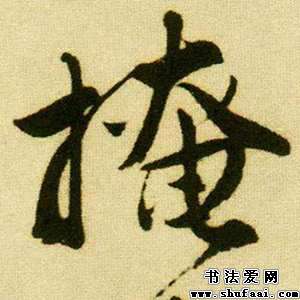 掩
书法爱网
www.shufaai.com